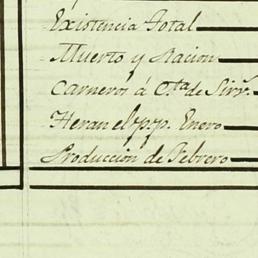 Existencia Total
Muerto y Racion
Carneros á Cta. de
Heran el p.p. Enero
Produccion de Febrero